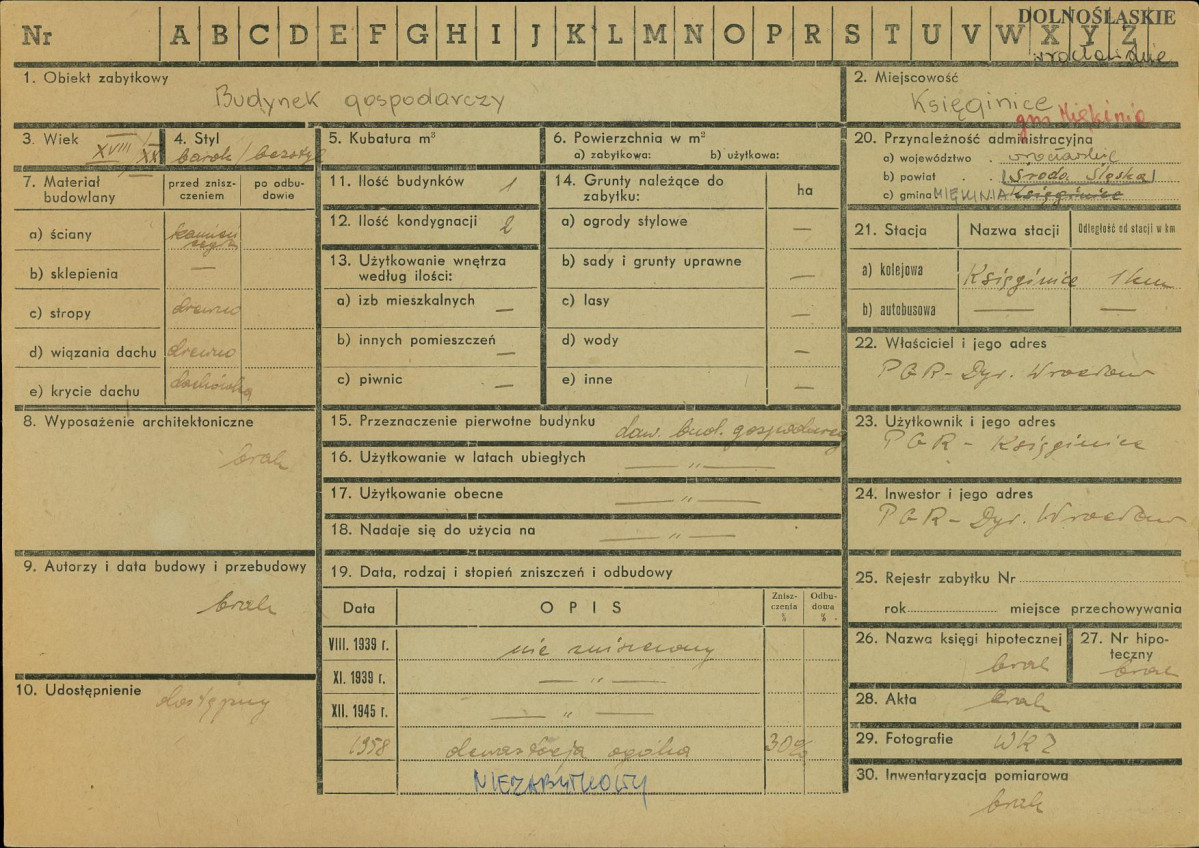 DOLNOŚLĄSKIE
Nr A B C D E F G H I J K L M N O P R S T U V W X Y Z
wrocławskie
1. Obiekt zabytkowy
Budynek gospodarczy
2. Miejscowość
Księginice
gm Miękinia
3. Wiek
XVIII/XX
4. Styl
barok/bezstyl
5. Kubatura m³
6. Powierzchnia w m²
a) zabytkowa: b) użytkowa:
7. Materiał budowlany
przed znisz-
czeniem
po odbu-
dowie
a) ściany kamień cegła
b) sklepienia —
c) stropy drewno
d) wiązania dachu drewno
e) krycie dachu dachówka
8. Wyposażenie architektoniczne
brak
9. Autorzy i data budowy i przebudowy
brak
10. Udostępnienie dostępny
11. Ilość budynków 1
12. Ilość kondygnacji 2
13. Użytkowanie wnętrza
według ilości:
a) izb mieszkalnych —
b) innych pomieszczeń —
c) piwnic —
14. Grunty należące do
zabytku:
ha
a) ogrody stylowe —
b) sady i grunty uprawne —
c) lasy —
d) wody —
e) inne —
15. Przeznaczenie pierwotne budynku daw. bud. gospodarczy
16. Użytkowanie w latach ubiegłych — „ —
17. Użytkowanie obecne — „ —
18. Nadaje się do użycia na — „ —
19. Data, rodzaj i stopień zniszczeń i odbudowy
Data OPIS
Znisz-
czenia
%
Odbu-
dowa
%
VIII. 1939 r. nie zniszczony
XI. 1939 r. — „ —
XII. 1945 r. — „ —
1958 dewastacja ogólna 30%
NIEZABYTKOWY
20. Przynależność administracyjna
a) województwo wrocławskie
b) powiat Środa Śląska
c) gmina MIĘKINIA Księginice
21. Stacja Nazwa stacji Odległość od stacji w km
a) kolejowa Księginice 1 km
b) autobusowa — —
22. Właściciel i jego adres
PGR - Dyr. Wrocław
23. Użytkownik i jego adres
PGR - Księginice
24. Inwestor i jego adres
PGR - Dyr. Wrocław
25. Rejestr zabytku Nr
rok miejsce przechowywania
26. Nazwa księgi hipotecznej
brak
27. Nr hipo-
teczny
brak
28. Akta brak
29. Fotografie WKZ
30. Inwentaryzacja pomiarowa
brak